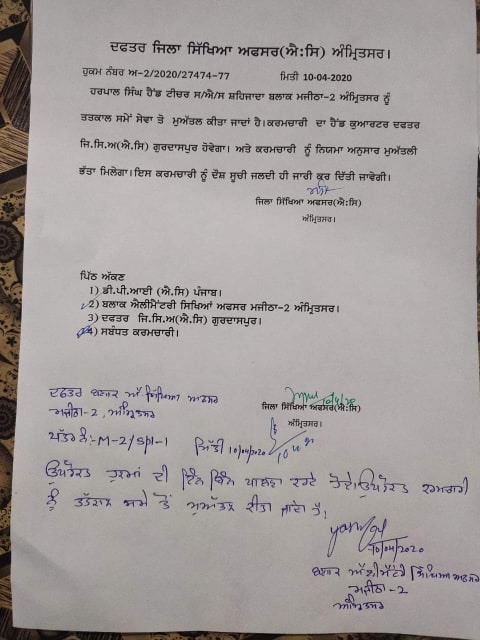 ਦਫਤਰ ਜਿਲਾ ਸਿੱਖਿਆ ਅਫਸਰ(ਐ:ਸਿ) ਅੰਮ੍ਰਿਤਸਰ।
ਹੁਕਮ ਨੰਬਰ ਅ-2/2020/27474-77 ਮਿਤੀ 10-04-2020
ਹਰਪਾਲ ਸਿੰਘ ਹੈੱਡ ਟੀਚਰ ਸ/ਐ/ਸ ਸ਼ਹਿਜਾਦਾ ਬਲਾਕ ਮਜੀਠਾ-2 ਅੰਮ੍ਰਿਤਸਰ ਨੂੰ
ਤਤਕਾਲ ਸਮੇਂ ਸੇਵਾ ਤੋ ਮੁਅੱਤਲ ਕੀਤਾ ਜਾਦਾਂ ਹੈ।ਕਰਮਚਾਰੀ ਦਾ ਹੈੱਡ ਕੁਆਰਟਰ ਦਫਤਰ
ਜਿ.ਸਿ.ਅ(ਐ.ਸਿ) ਗੁਰਦਾਸਪੁਰ ਹੋਵੇਗਾ। ਅਤੇ ਕਰਮਚਾਰੀ ਨੂੰ ਨਿਯਮਾ ਅਨੁਸਾਰ ਮੁਅੱਤਲੀ
ਭੱਤਾ ਮਿਲੇਗਾ।ਇਸ ਕਰਮਚਾਰੀ ਨੂੰ ਦੋਸ਼ ਸੂਚੀ ਜਲਦੀ ਹੀ ਜਾਰੀ ਕਰ ਦਿੱਤੀ ਜਾਵੇਗੀ।
ਜਿਲਾ ਸਿੱਖਿਆ ਅਫਸਰ(ਐ:ਸਿ)
ਅੰਮ੍ਰਿਤਸਰ।
ਪਿੱਠ ਅੱਕਣ
1) ਡੀ.ਪੀ.ਆਈ (ਐ.ਸਿ) ਪੰਜਾਬ।
2) ਬਲਾਕ ਐਲੀਮੈਂਟਰੀ ਸਿਖਿਆਂ ਅਫਸਰ ਮਜੀਠਾ-2 ਅੰਮ੍ਰਿਤਸਰ।
3) ਦਫਤਰ ਜਿ.ਸਿ.ਅ(ਐ.ਸਿ) ਗੁਰਦਾਸਪੁਰ।
4) ਸਬੰਧਤ ਕਰਮਚਾਰੀ।
10/4/20
ਜਿਲਾ ਸਿੱਖਿਆ ਅਫਸਰ(ਐ:ਸਿ)
ਅੰਮ੍ਰਿਤਸਰ।
ਦਫਤਰ ਬਲਾਕ ਐੱ. ਸਿੱਖਿਆ ਅਫਸਰ
ਮਜੀਠਾ-2, ਅੰਮ੍ਰਿਤਸਰ
ਪੱਤਰ ਨੰ:-M-2/Spl-1 ਮਿਤੀ 10/04/2020
ਉਪਰੋਕਤ ਹੁਕਮਾਂ ਦੀ ਇੰਨ ਬਿੰਨ ਪਾਲਣਾ ਕਰਦੇ ਹੋਏ ਉਪਰੋਕਤ ਕਰਮਚਾਰੀ
ਨੂੰ ਤਤਕਾਲ ਸਮੇਂ ਤੋਂ ਮੁਅੱਤਲ ਕੀਤਾ ਜਾਂਦਾ ਹੈ।
10/04/2020
ਬਲਾਕ ਐਲੀਮੈਂਟਰੀ ਸਿੱਖਿਆ ਅਫਸਰ
ਮਜੀਠਾ-2
ਅੰਮ੍ਰਿਤਸਰ